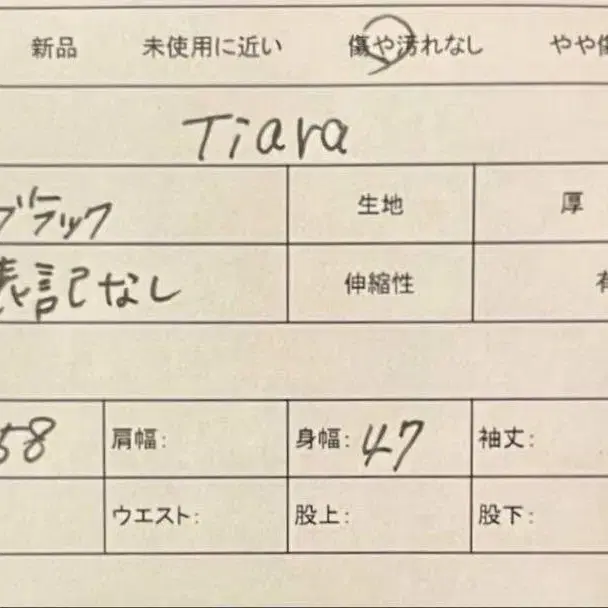 新品 未使用に近い 傷や汚れなし やや傷
Tiara
ブラック 生地 厚
表記なし 伸縮性 有
58 肩幅: 身幅: 47 袖丈:
ウエスト: 股上: 股下: